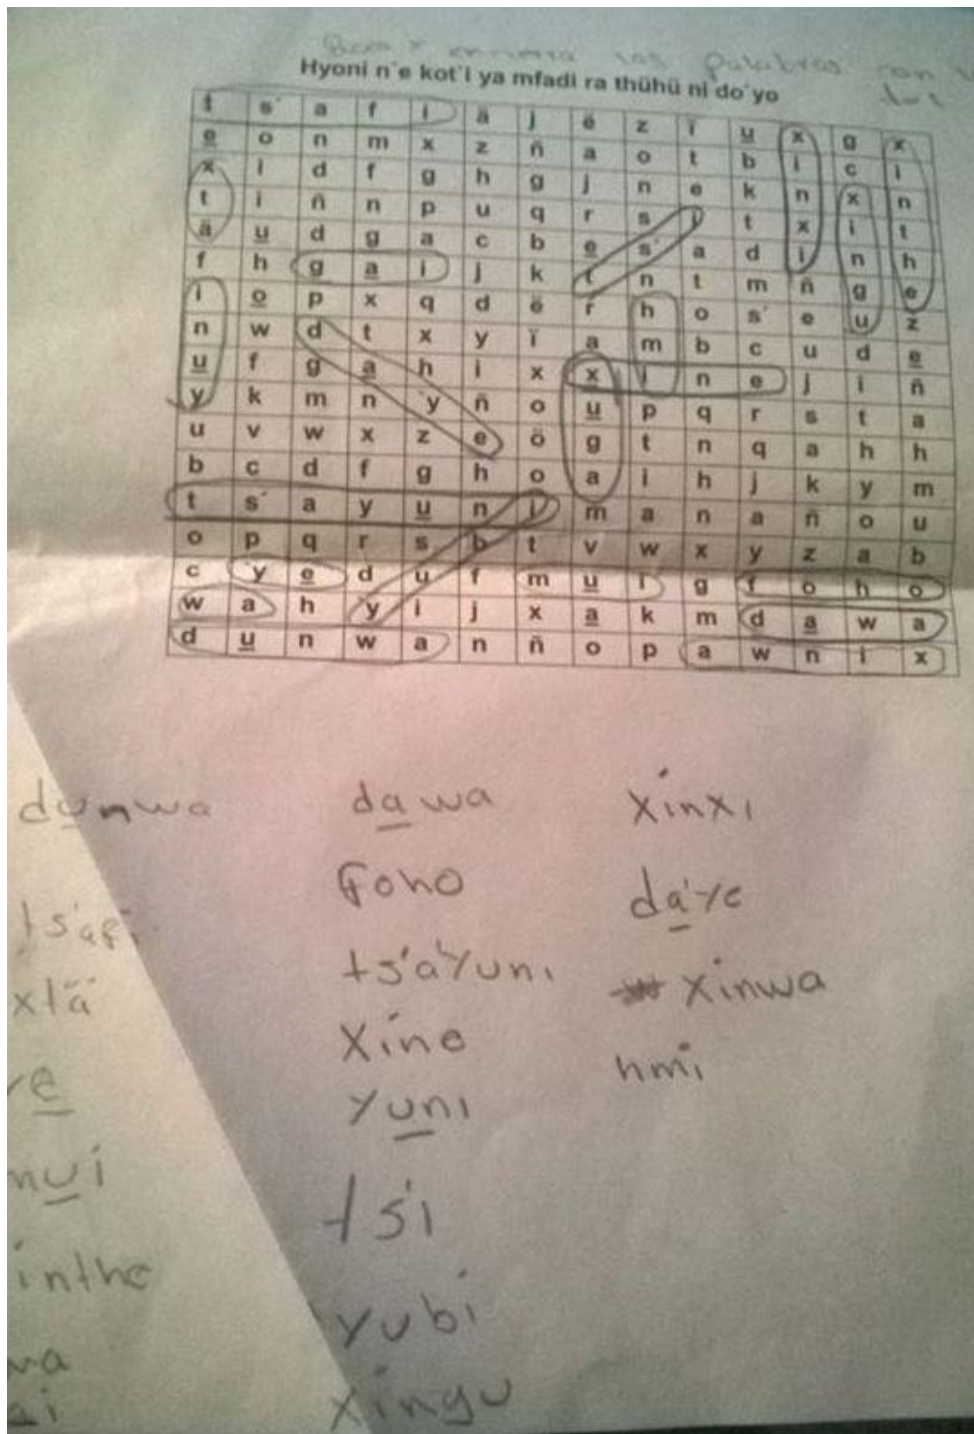 Hyoni n´e kot´i ya mfadi ra thühü ni do´yo
t s´ a f i ä j ë z ï u̲ x g x
e̲ o n m x z ñ a o t b i c i
x l d f g h g j n e k n x n
t i ñ n p u q r s i t x i t
ä u̲ d g a c b e̲ s´ a d i n h
f h g a̲ i j k t n t m ñ g e
i o̲ p x q d ë r h o s´ e u z
n w d t x y ï a m b c u d e̲
u̲ f g a̲ h i x x i n e j i ñ
y k m n ´y ñ o u̲ p q r s t a
u v w x z e ö g t n q a h h
b c d f g h o a i h j k y m
t s´ a y u̲ n i m a n a ñ o u
o p q r s b t v w x y z a b
c ´y e̲ d u f m u̲ i g f o h o
w a h y i j x a̲ k m d a̲ w a
d u̲ n w a n ñ o p a w n i x
du̲nwa
ts'afi
xtä
e̲
u̲i
inthe
da̲wa
foho
ts'a'yuni
Xine
yu̲ni
ts'i
yubi
xingu
xinxi
da̲'ye
xinwa
hmi